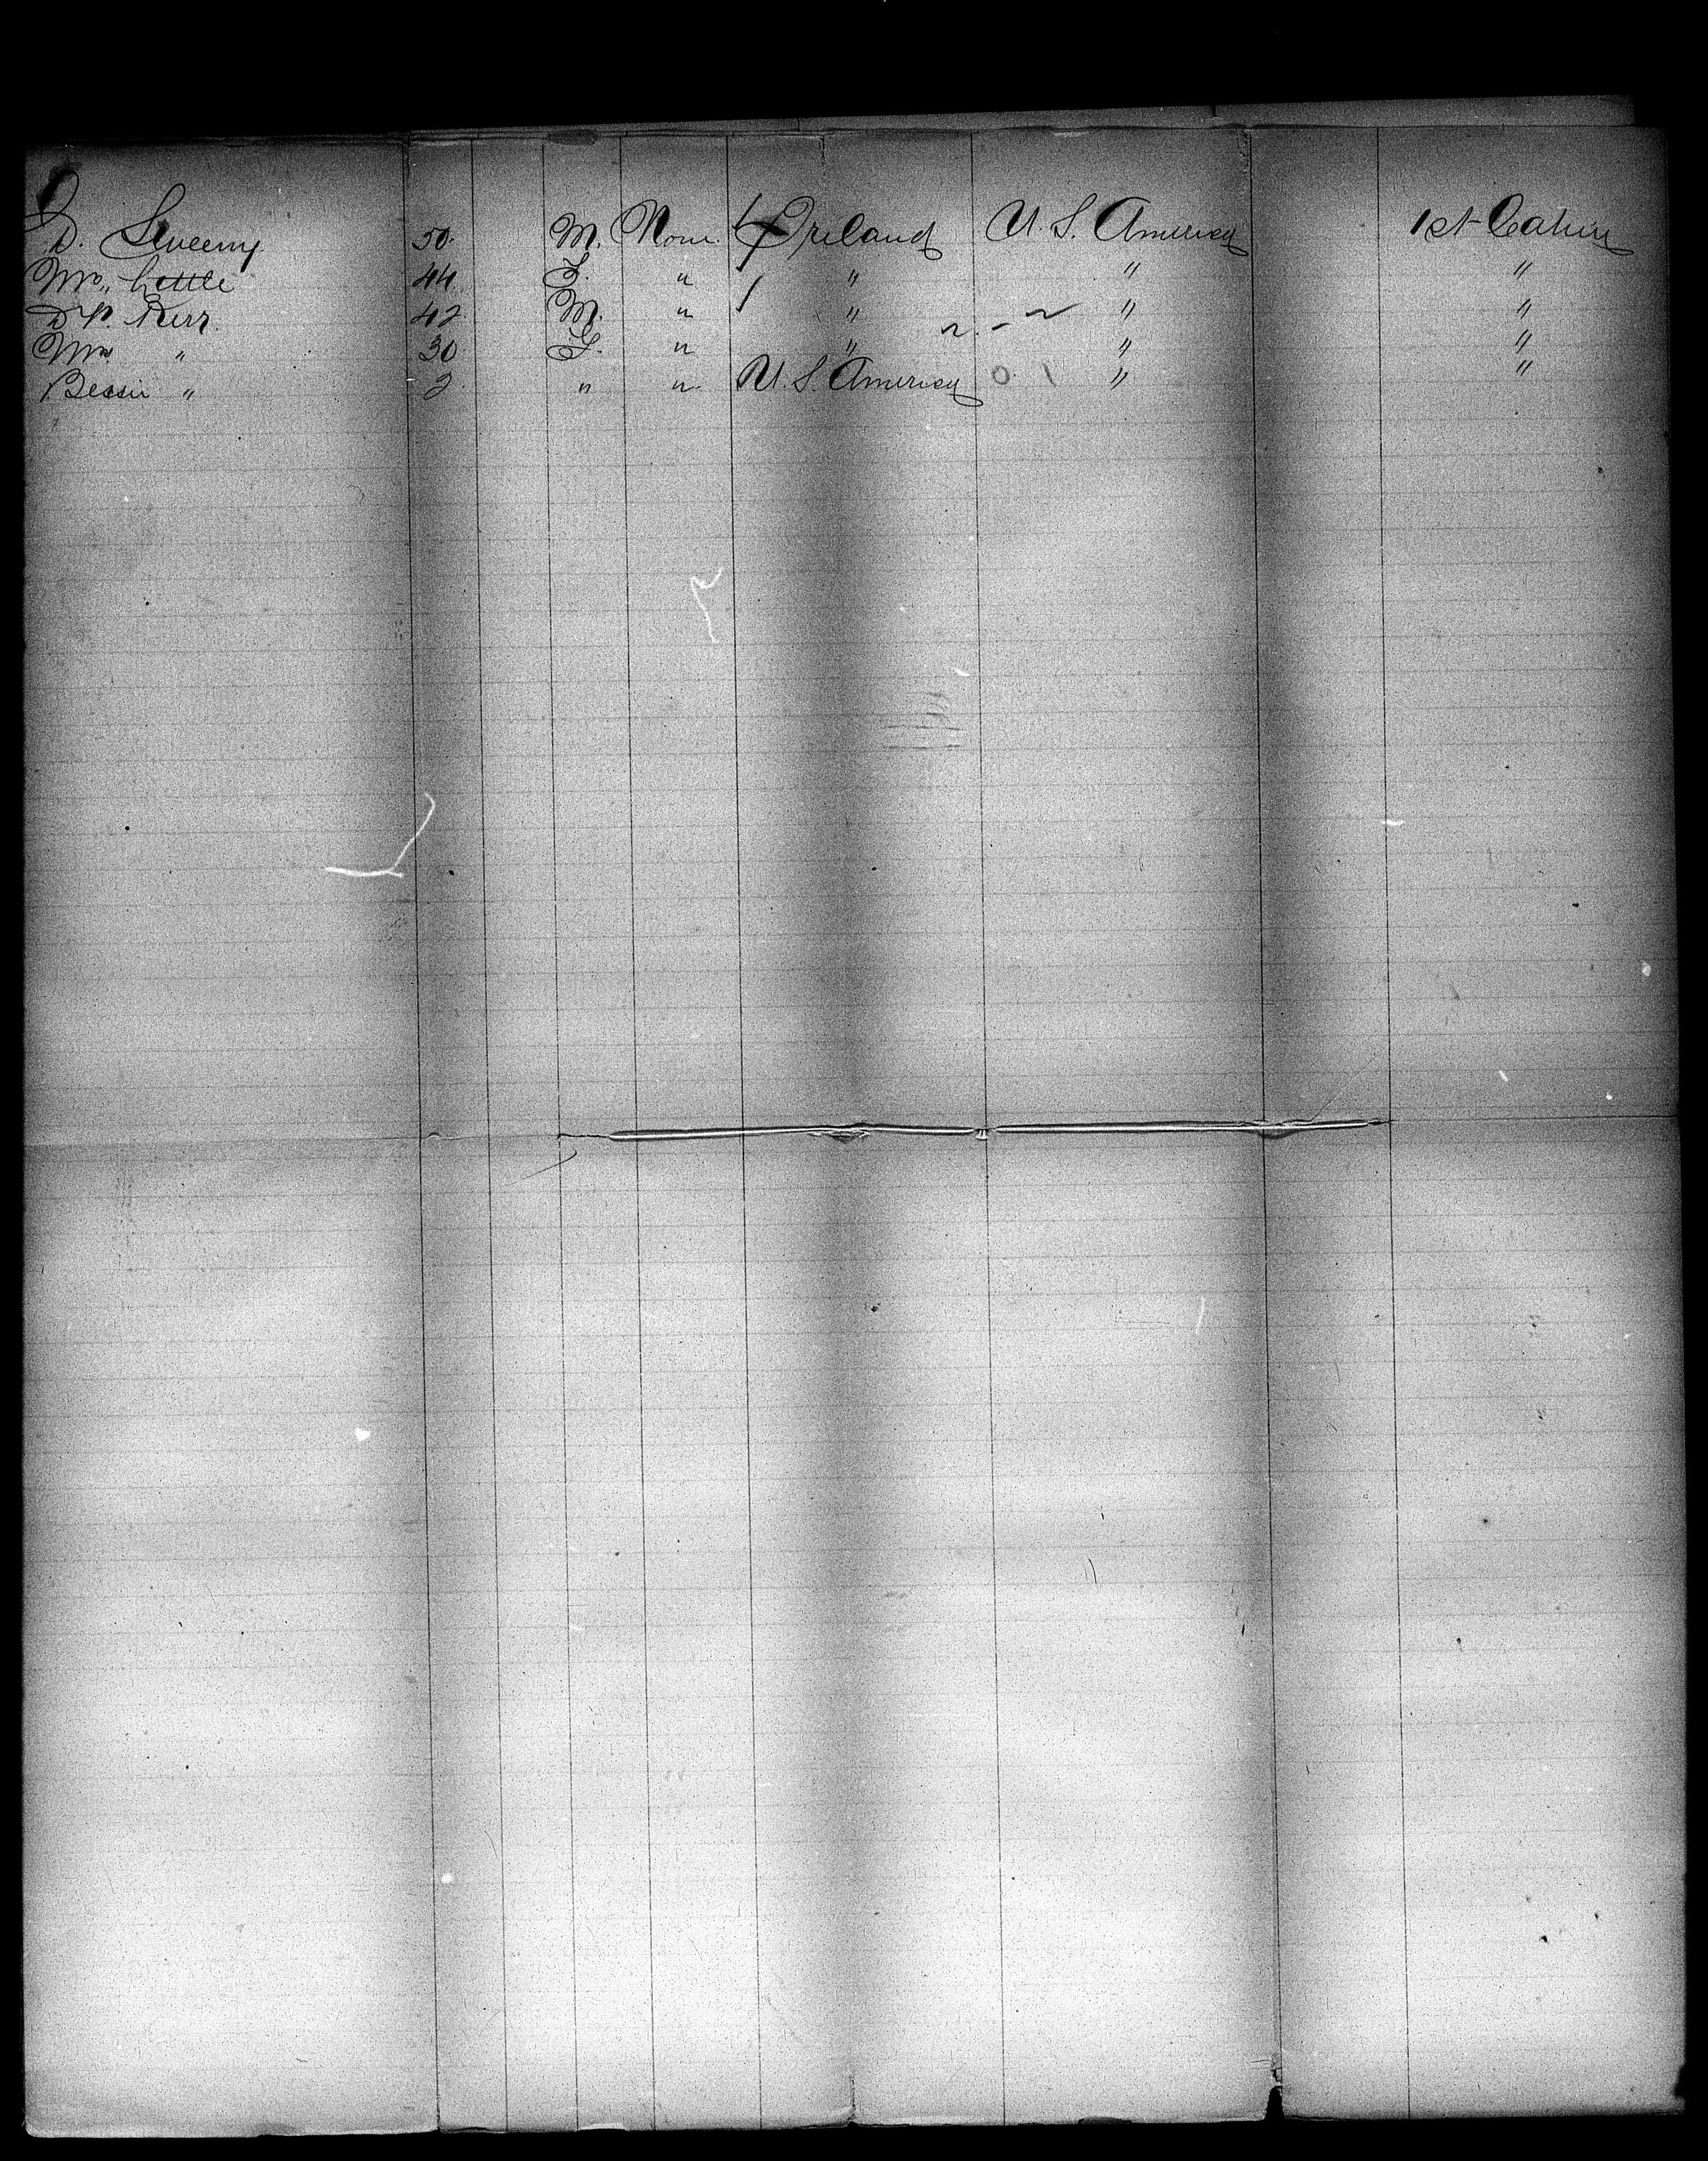 D. Sweeny 50. M. None. Ireland U. S. America 1st Cabin
Mrs. Little 44 F. " " " "
D P. Kerr. 42 M. " " " "
Mrs " 30 F. " " " "
Bessie " 2. " " U. S. America 0. 1 " "